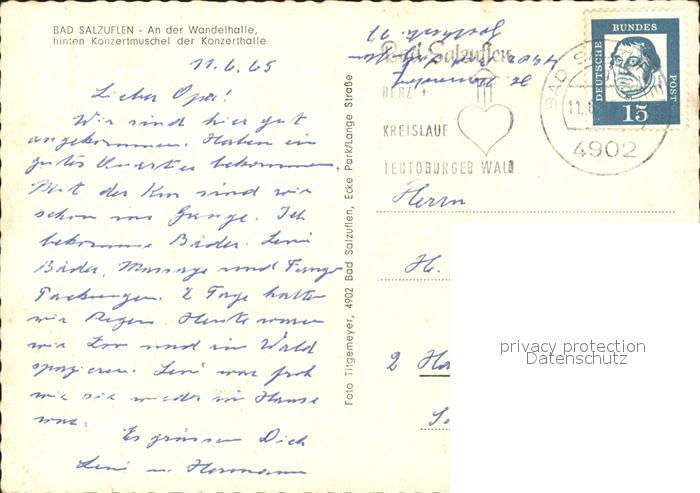 BAD SALZUFLEN - An der Wandelhalle,
hinten Konzertmuschel der Konzerthalle
11.6.65
Lieber Opa!
Wir sind hier gut
angekommen. Haben ein
gutes Quartier bekommen.
Mit der Kur sind wir
schon im Gange. Ich
bekomme Bäder. Leni
Bäder, Massage und Fango
Packungen. 2 Tage hatten
wir Regen. Heute waren
wir Zoo und im Wald
spazieren. Leni war froh
wie sie wieder im Hause
war.
Es grüssen Dich
Leni u. Hermann
Foto Titgemeyer, 4902 Bad Salzuflen, Ecke Park/Lange Straße
Bad Salzuflen
HERZ +
KREISLAUF
TEUTOBURGER WALD
BAD
11.
4902
DEUTSCHE
BUNDES
POST
15
Herrn
H.
2 Ha
privacy protection
Datenschutz